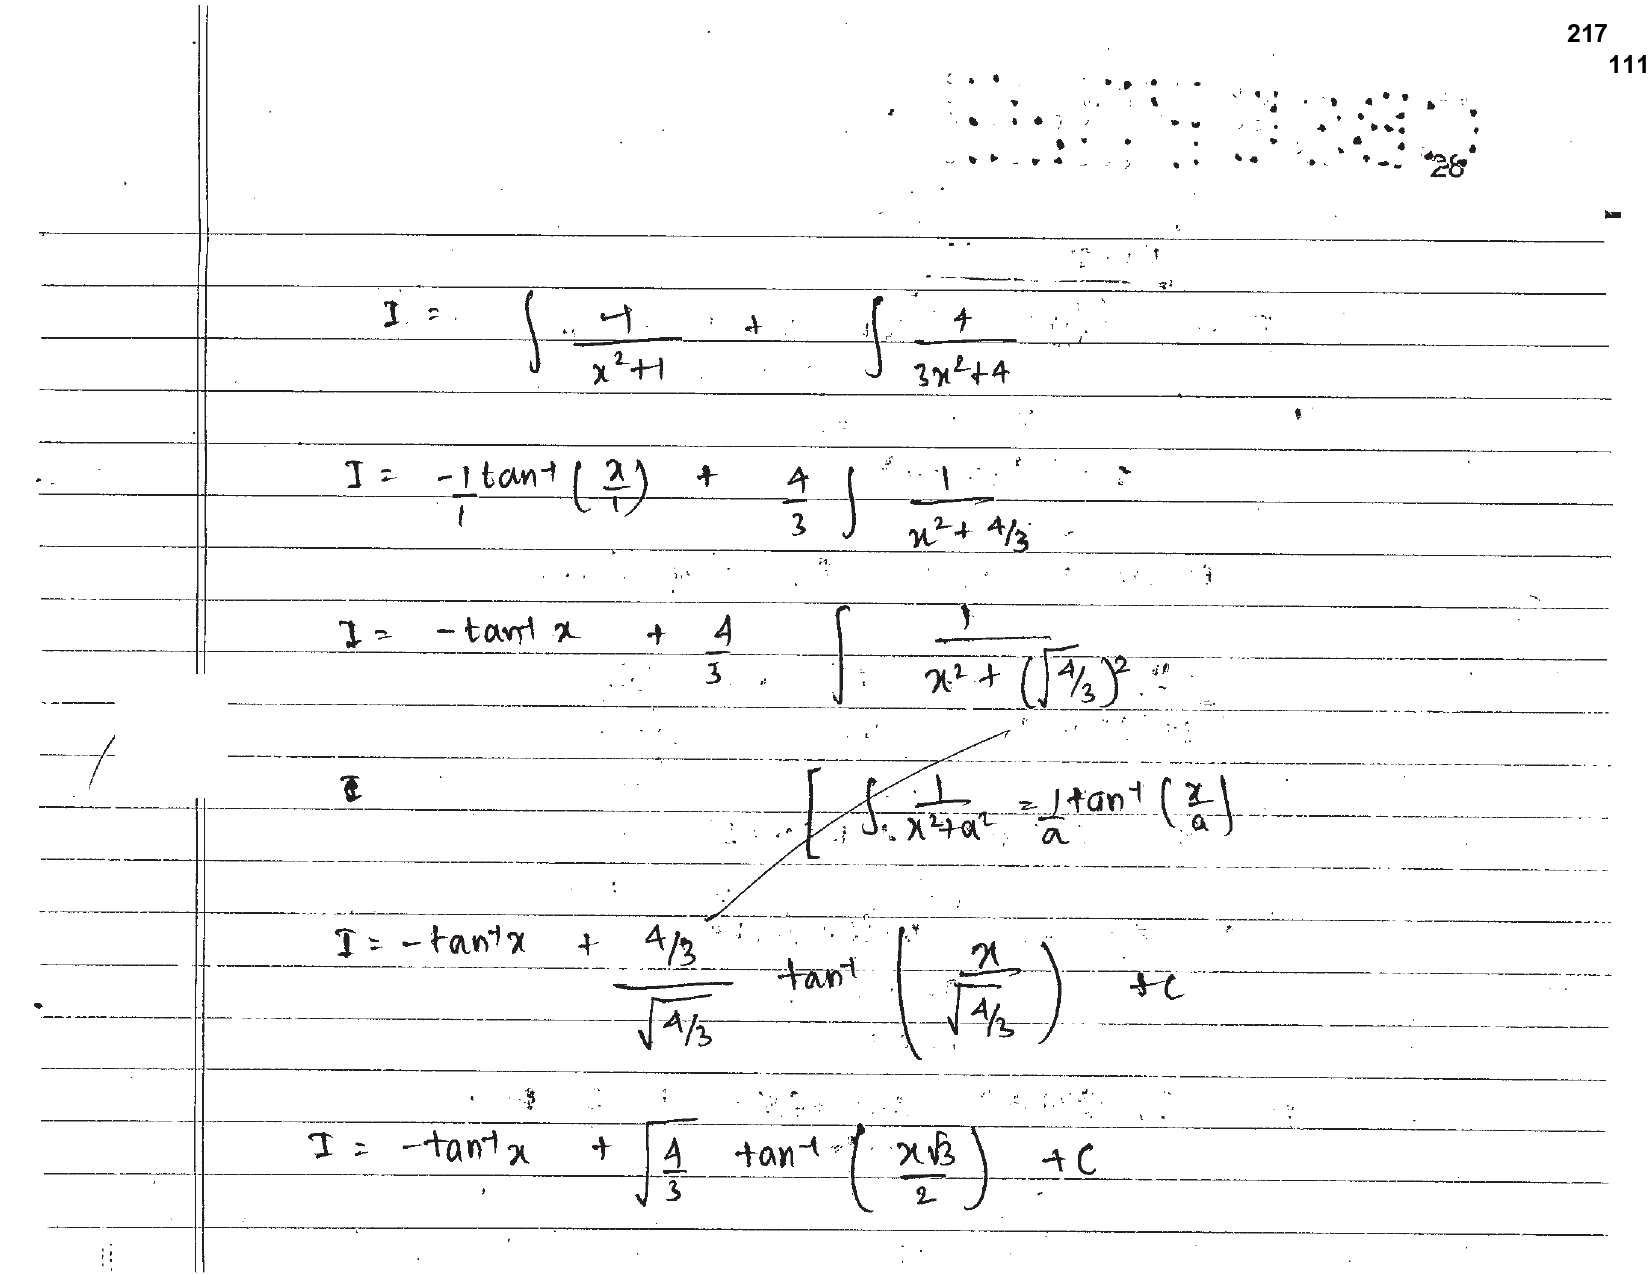 217
111
28
I = ∫ -1/(x²+1) + ∫ 4/(3x²+4)
I = -1/1 tan⁻¹ (x/1) + 4/3 ∫ 1/(x² + 4/3)
I = -tan⁻¹ x + 4/3 ∫ 1/(x² + (√4/3)²)
[ ∫ 1/(x²+a²) = 1/a tan⁻¹ (x/a)
I = -tan⁻¹x + (4/3)/(√4/3) tan⁻¹ (x/(√4/3)) + C
I = -tan⁻¹x + √(4/3) tan⁻¹ (x√3/2) + C